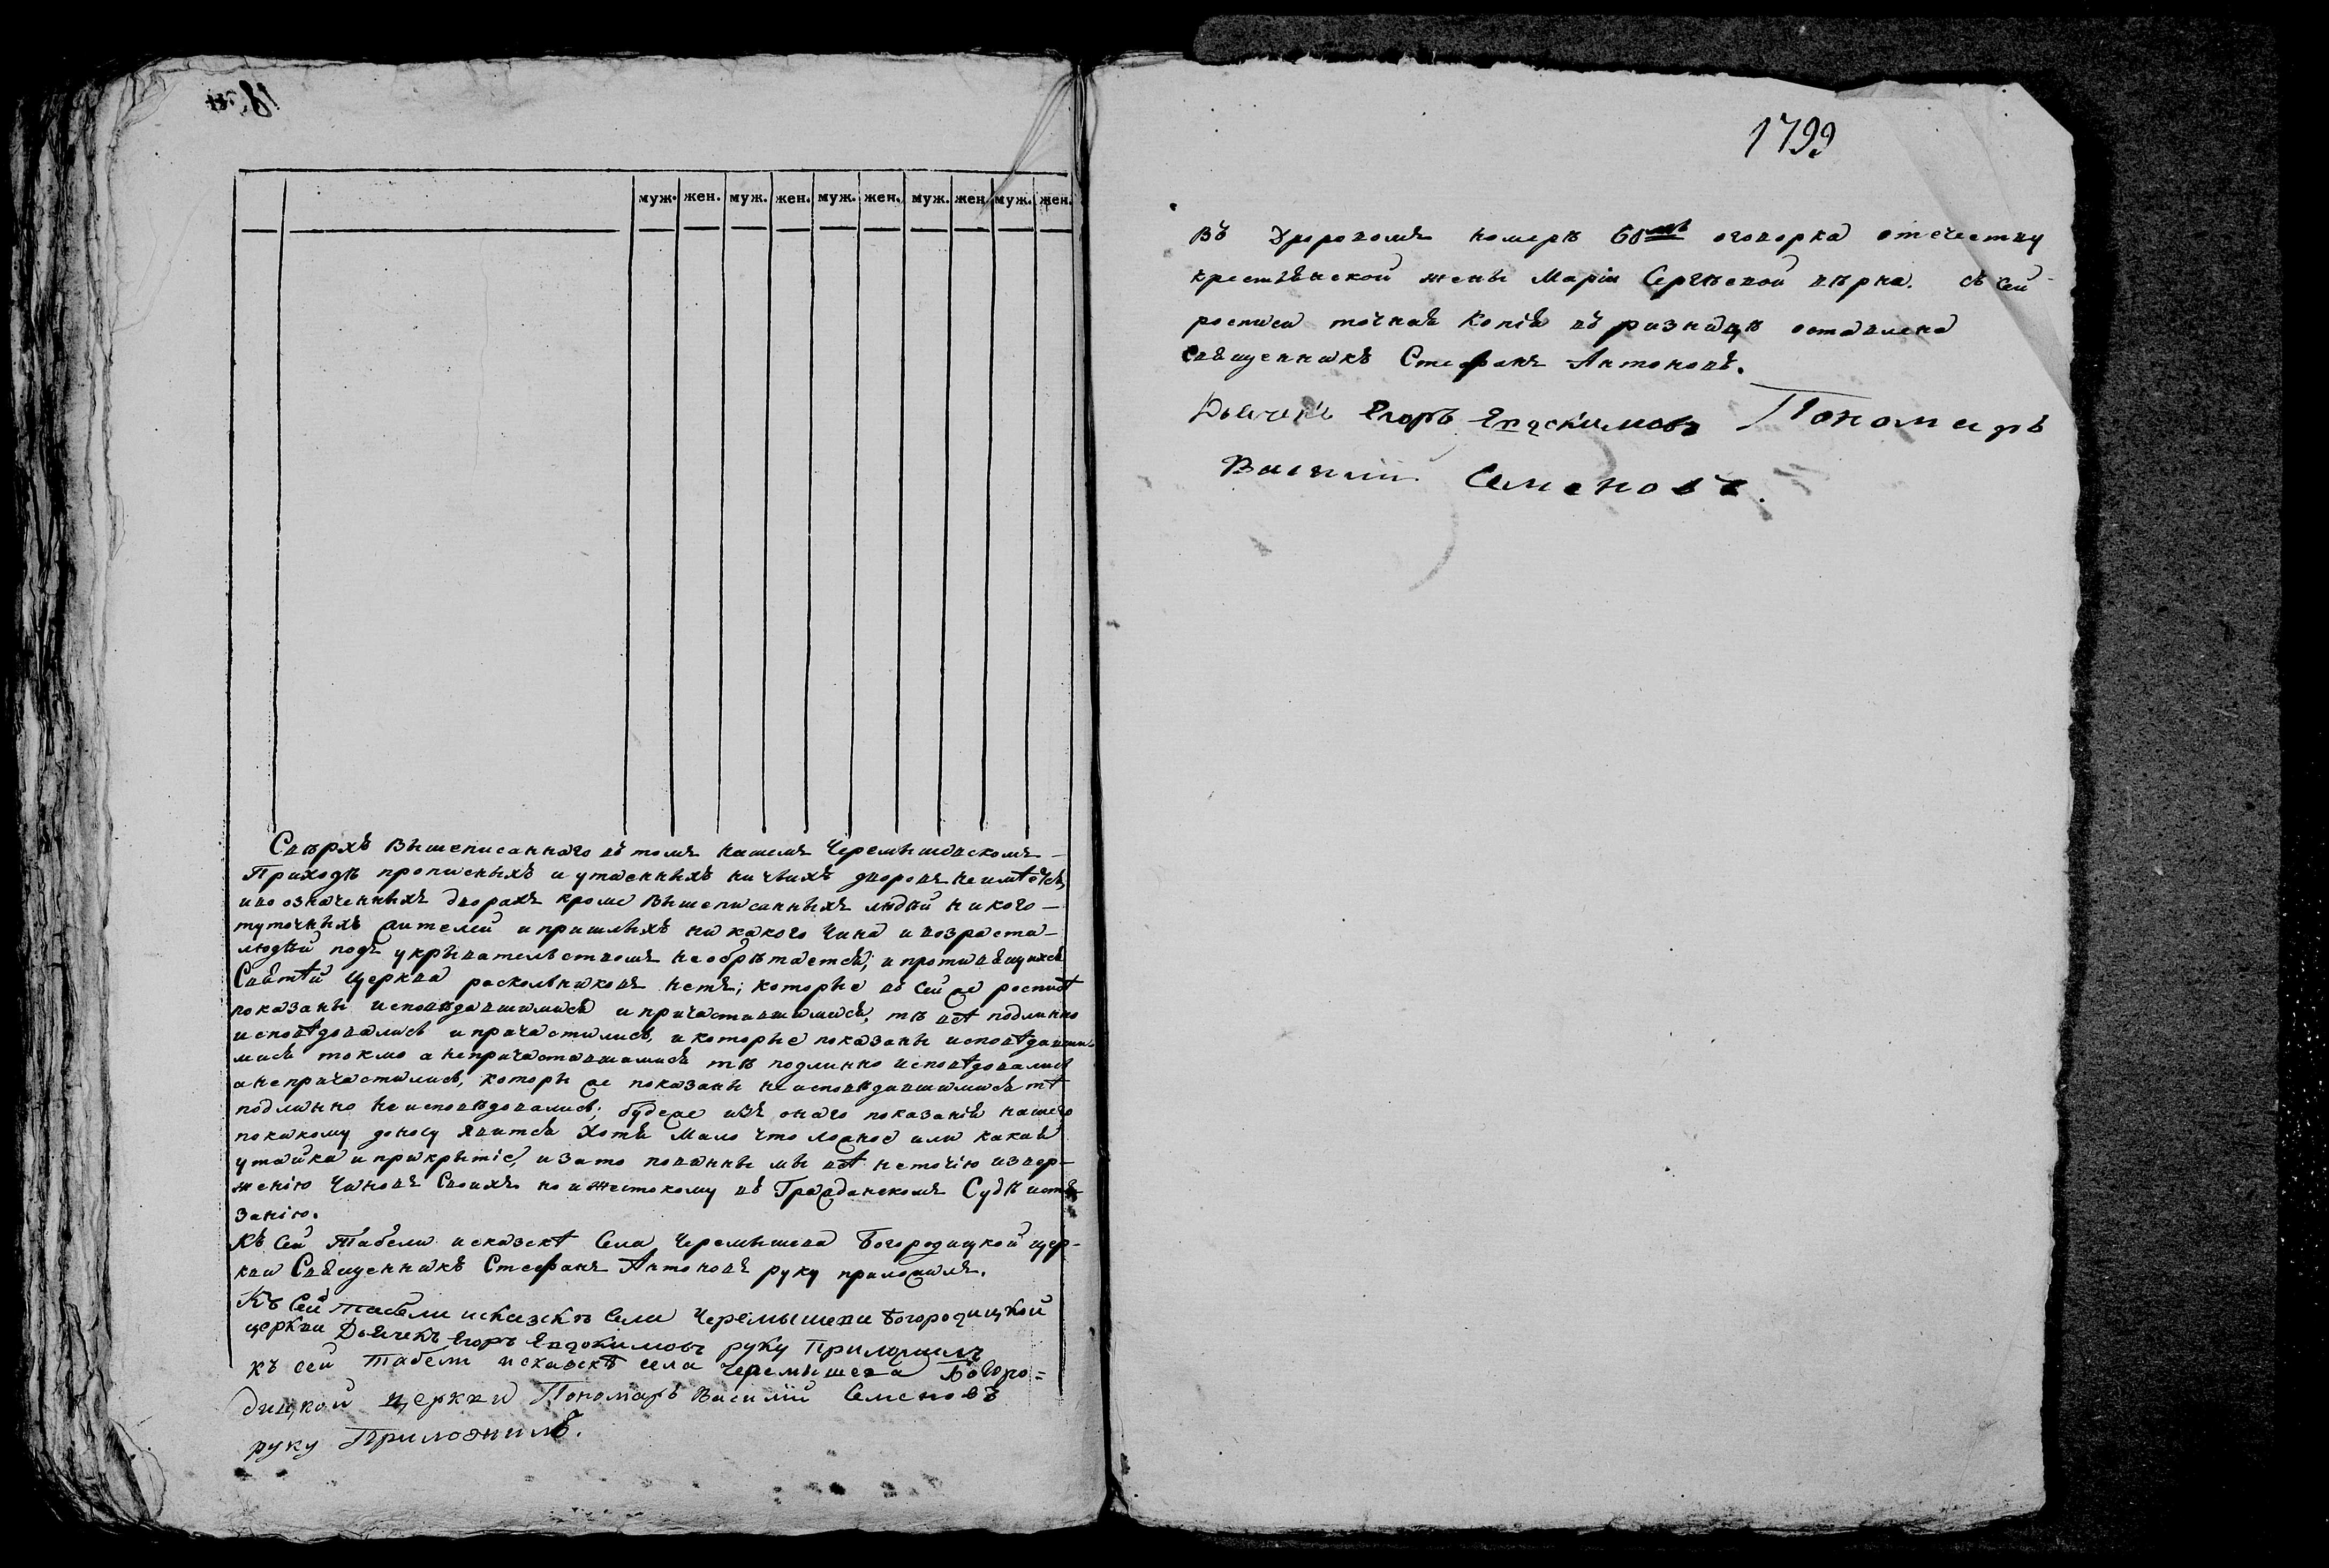 муж. жен. муж. жен. муж. жен. муж. жен. муж. жен.
Сверхъ вышеписаннаго въ томъ нашемъ Черемышевскомъ
Приходѣ прописныхъ и утаенныхъ ни чьихъ дворовъ не имѣется,
и во означенныхъ дворахъ кроме вышеписанныхъ людѣй никого
туточныхъ жителей и пришлыхъ никакого чина и возраста
людѣй подъ укрывательствомъ не обрѣтается; и противящихся
Святѣй Церкви раскольниковъ нетъ; которые въ сей же росписѣ
показаны исповѣдавшимися и причастившимися, тѣ всѣ подлинно
исповѣдовались и причастились, и которые показаны исповѣдавши-
мися токмо а непричастившимися тѣ подлинно исповѣдовались
а непричастились, которы же показаны неисповѣдавшимися тѣ
подлинно неисповѣдовались; будеже изъ онаго показанія нашего
по какому доносу явится хотя мало что ложное или какая
утайка и прикрытіе, и за то повинны мы всѣ не точію извер-
женію чиновъ своихъ но и жестокому въ Гражданскомъ Судѣ истя-
занію.
Къ сей табели и сказскѣ Села Черемышева Богородицкой цер-
кви Священникъ Стефанъ Антоновъ руку приложилъ.
Къ сей табели и сказкѣ села Черемышева Богородицкой
церкви Дьячекъ Егоръ Евдокимовъ руку приложилъ
къ сей табели и сказскѣ села Черемышева Богоро=
дицкой церкви Пономарь Василій Семеновъ
руку Приложилъ.
1799
Въ дворовомъ номерѣ 60мъ оговорка отечеству
крестьянской жены Маріи Сергѣевой вѣрна. съ сей
росписи точная копія въ ризницѣ оставлена
священникъ Стефанъ Антоновъ.
Дьячекъ Егоръ Евдокимовъ Пономарь
Василій Семеновъ.